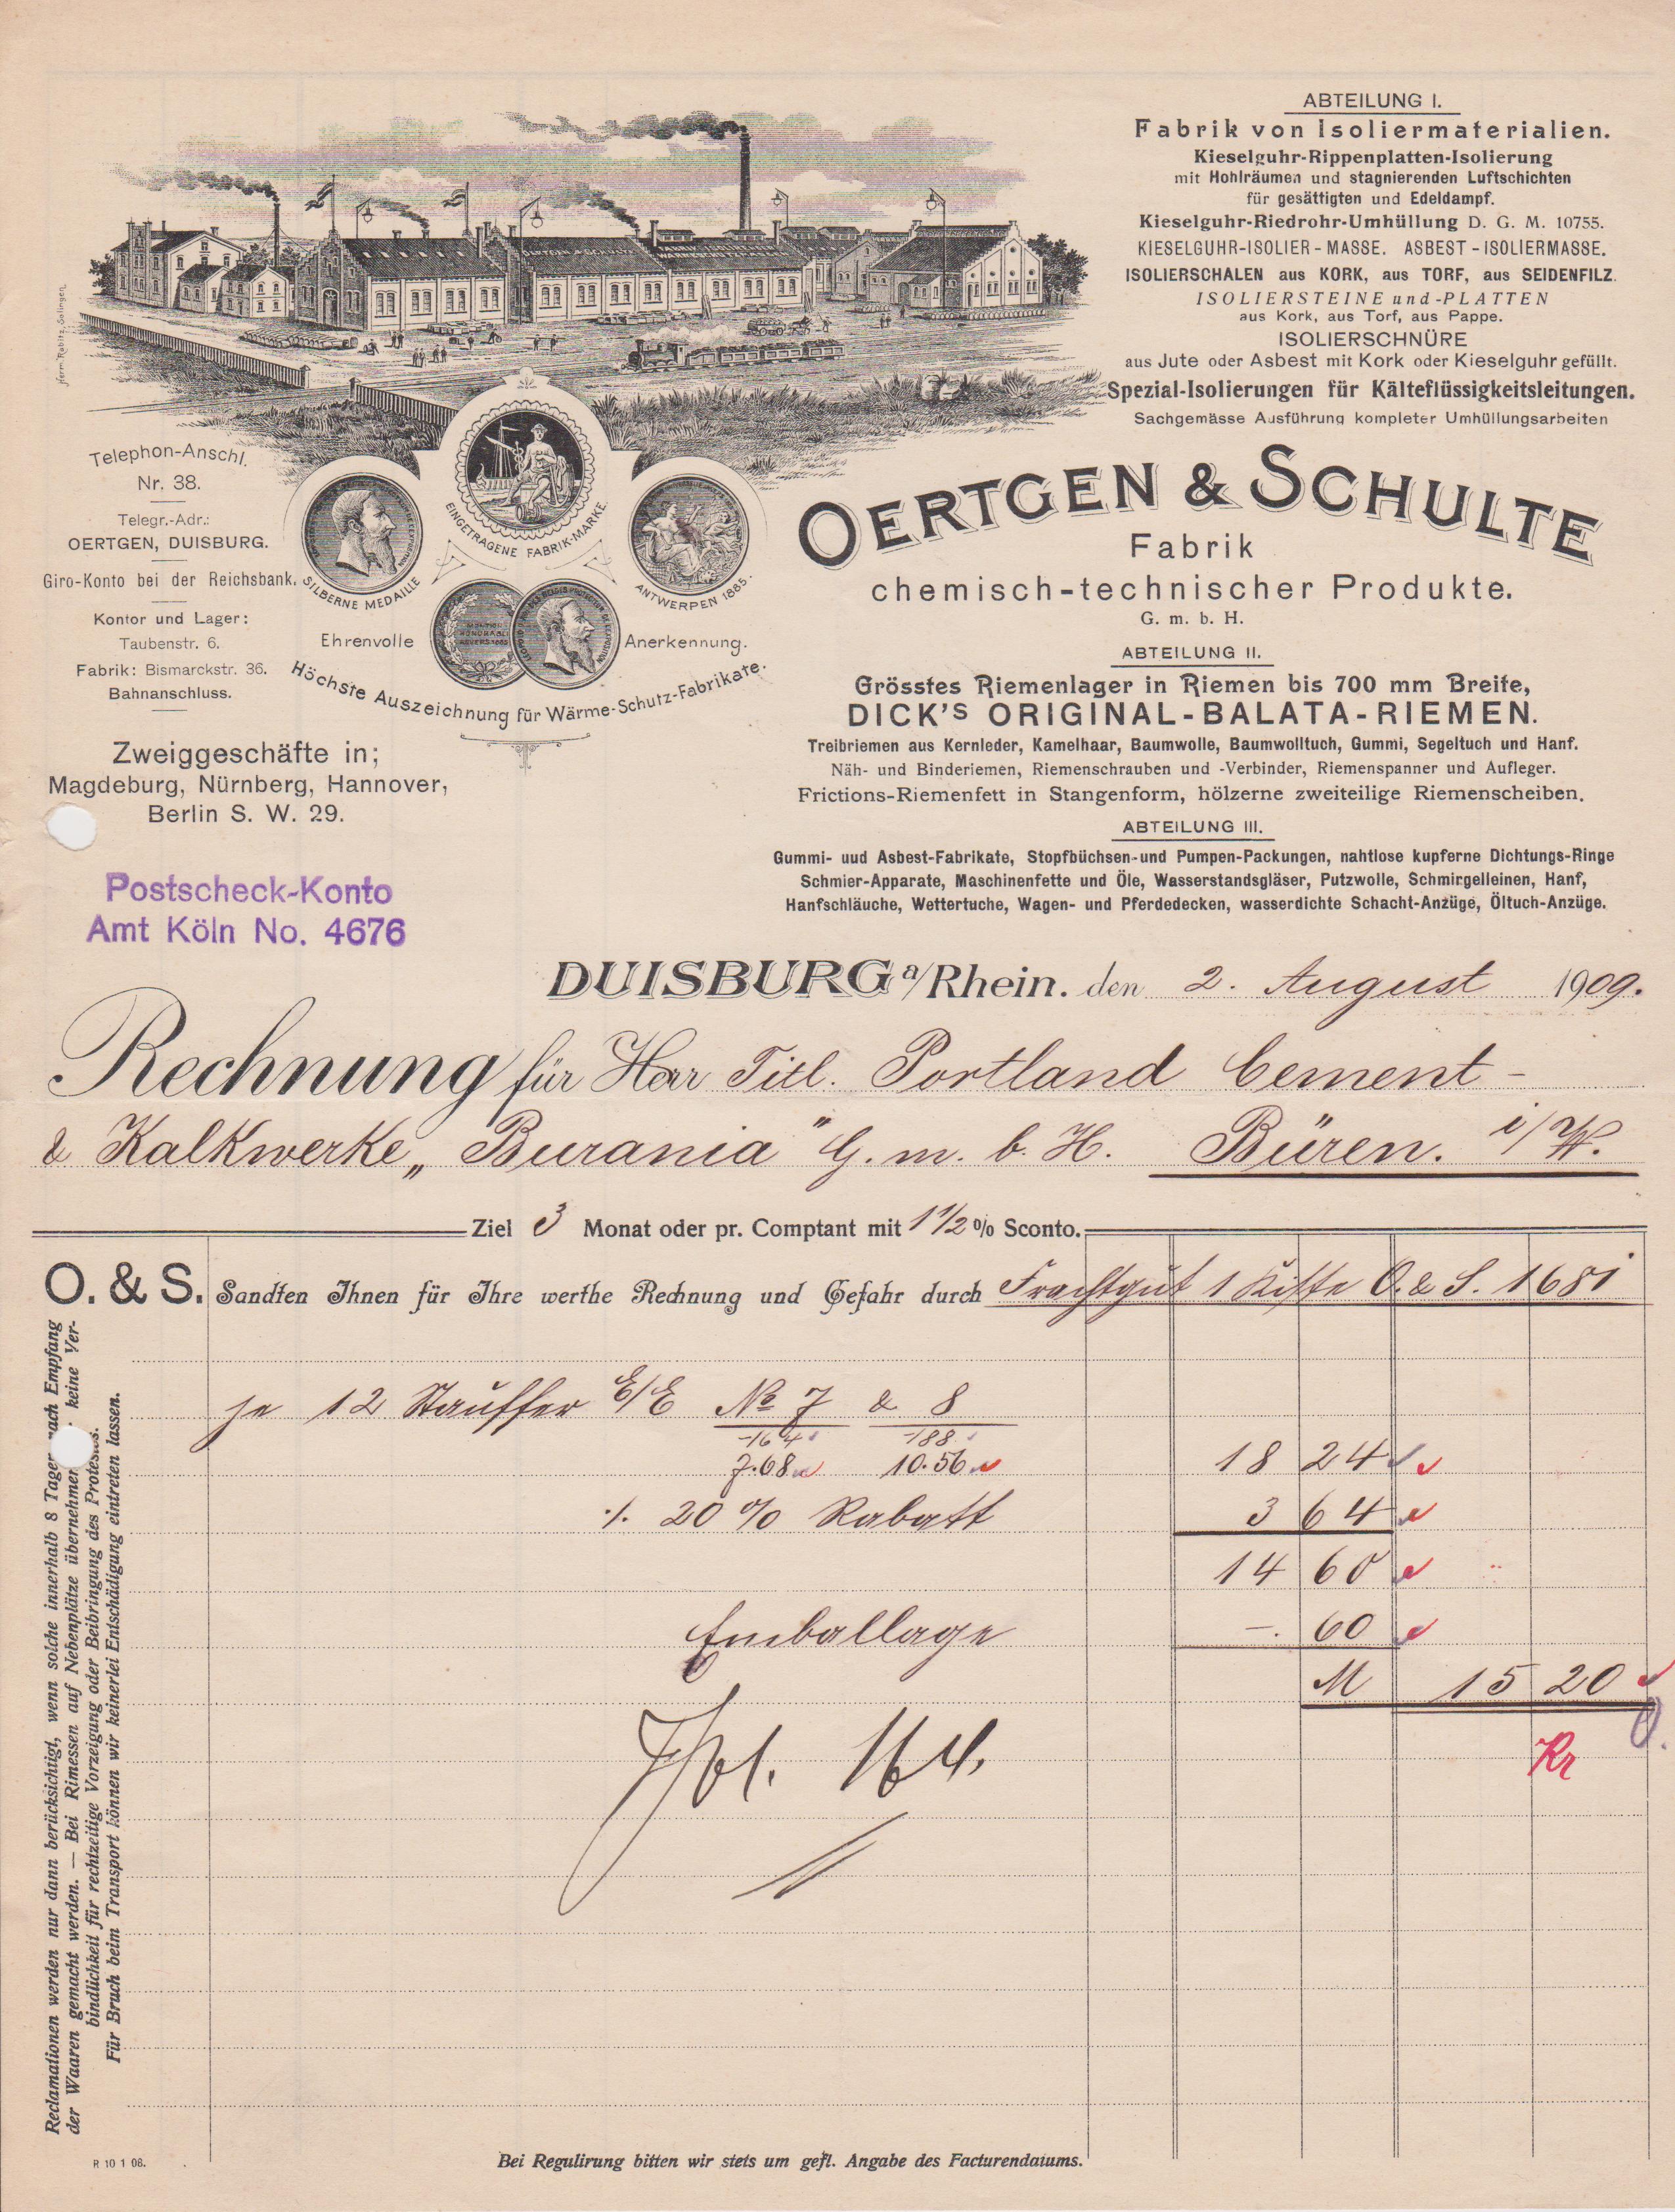 ABTEILUNG I.
Fabrik von Isoliermaterialien.
Kieselguhr-Rippenplatten-Isolierung
mit Hohlräumen und stagnierenden Luftschichten
für gesättigten und Edeldampf.
Kieselguhr-Riedrohr-Umhüllung D. G. M. 10755.
KIESELGUHR-ISOLIER-MASSE. ASBEST-ISOLIERMASSE.
ISOLIERSCHALEN aus KORK, aus TORF, aus SEIDENFILZ.
ISOLIERSTEINE und -PLATTEN
aus Kork, aus Torf, aus Pappe.
ISOLIERSCHNÜRE
aus Jute oder Asbest mit Kork oder Kieselguhr gefüllt.
Spezial-Isolierungen für Kälteflüssigkeitsleitungen.
Sachgemässe Ausführung kompleter Umhüllungsarbeiten
Herm. Rabitz, Solingen.
Telephon-Anschl.
Nr. 38.
Telegr.-Adr.:
OERTGEN, DUISBURG.
Giro-Konto bei der Reichsbank.
Kontor und Lager:
Taubenstr. 6.
Fabrik: Bismarckstr. 36.
Bahnanschluss.
EINGETRAGENE FABRIK-MARKE.
SILBERNE MEDAILLE
ANTWERPEN 1885.
Ehrenvolle Anerkennung.
Höchste Auszeichnung für Wärme-Schutz-Fabrikate.
OERTGEN & SCHULTE
Fabrik
chemisch-technischer Produkte.
G. m. b. H.
ABTEILUNG II.
Grösstes Riemenlager in Riemen bis 700 mm Breite,
DICK'S ORIGINAL-BALATA-RIEMEN.
Treibriemen aus Kernleder, Kamelhaar, Baumwolle, Baumwolltuch, Gummi, Segeltuch und Hanf.
Näh- und Binderiemen, Riemenschrauben und -Verbinder, Riemenspanner und Aufleger.
Frictions-Riemenfett in Stangenform, hölzerne zweiteilige Riemenscheiben.
ABTEILUNG III.
Gummi- uud Asbest-Fabrikate, Stopfbüchsen-und Pumpen-Packungen, nahtlose kupferne Dichtungs-Ringe
Schmier-Apparate, Maschinenfette und Öle, Wasserstandsgläser, Putzwolle, Schmirgelleinen, Hanf,
Hanfschläuche, Wettertuche, Wagen- und Pferdedecken, wasserdichte Schacht-Anzüge, Öltuch-Anzüge.
Zweiggeschäfte in;
Magdeburg, Nürnberg, Hannover,
Berlin S. W. 29.
Postscheck-Konto
Amt Köln No. 4676
DUISBURG a/Rhein. den 2. August 1909.
Rechnung für Herr Titl. Portland Cement-
& Kalkwerke „Burania" G. m. b. H. Büren. i/W.
Ziel 3 Monat oder pr. Comptant mit 1 1/2 % Sconto.
O. & S. Sandten Ihnen für Ihre werthe Rechnung und Gefahr durch Frachtgut 1 Kiste O. & S. 1681
je 12 Stauffer E/E No 7 & 8
-164 -188
7.68 10.56 18 24
./. 20 % Rabatt 3 64
14 60
Emballage -. 60
M 15 20
Kr
Fol. 164.
Reclamationen werden nur dann berücksichtigt, wenn solche innerhalb 8 Tagen nach Empfang
der Waaren gemacht werden. — Bei Rimessen auf Nebenplätze übernehmen keine Ver-
bindlichkeit für rechtzeitige Vorzeigung oder Beibringung des Protestes.
Für Bruch beim Transport können wir keinerlei Entschädigung eintreten lassen.
R 10 1 08.
Bei Regulirung bitten wir stets um gefl. Angabe des Facturendatums.